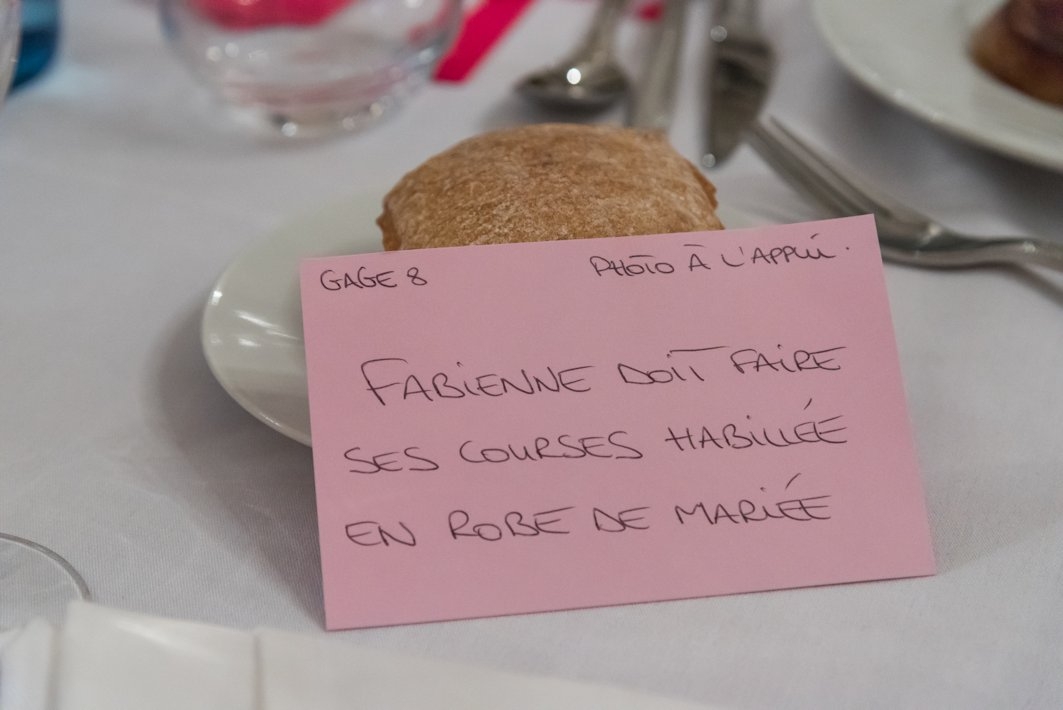 GAGE 8 PHOTO À L'APPUI.
FABIENNE DOIT FAIRE
SES COURSES HABILLÉE
EN ROBE DE MARIÉE